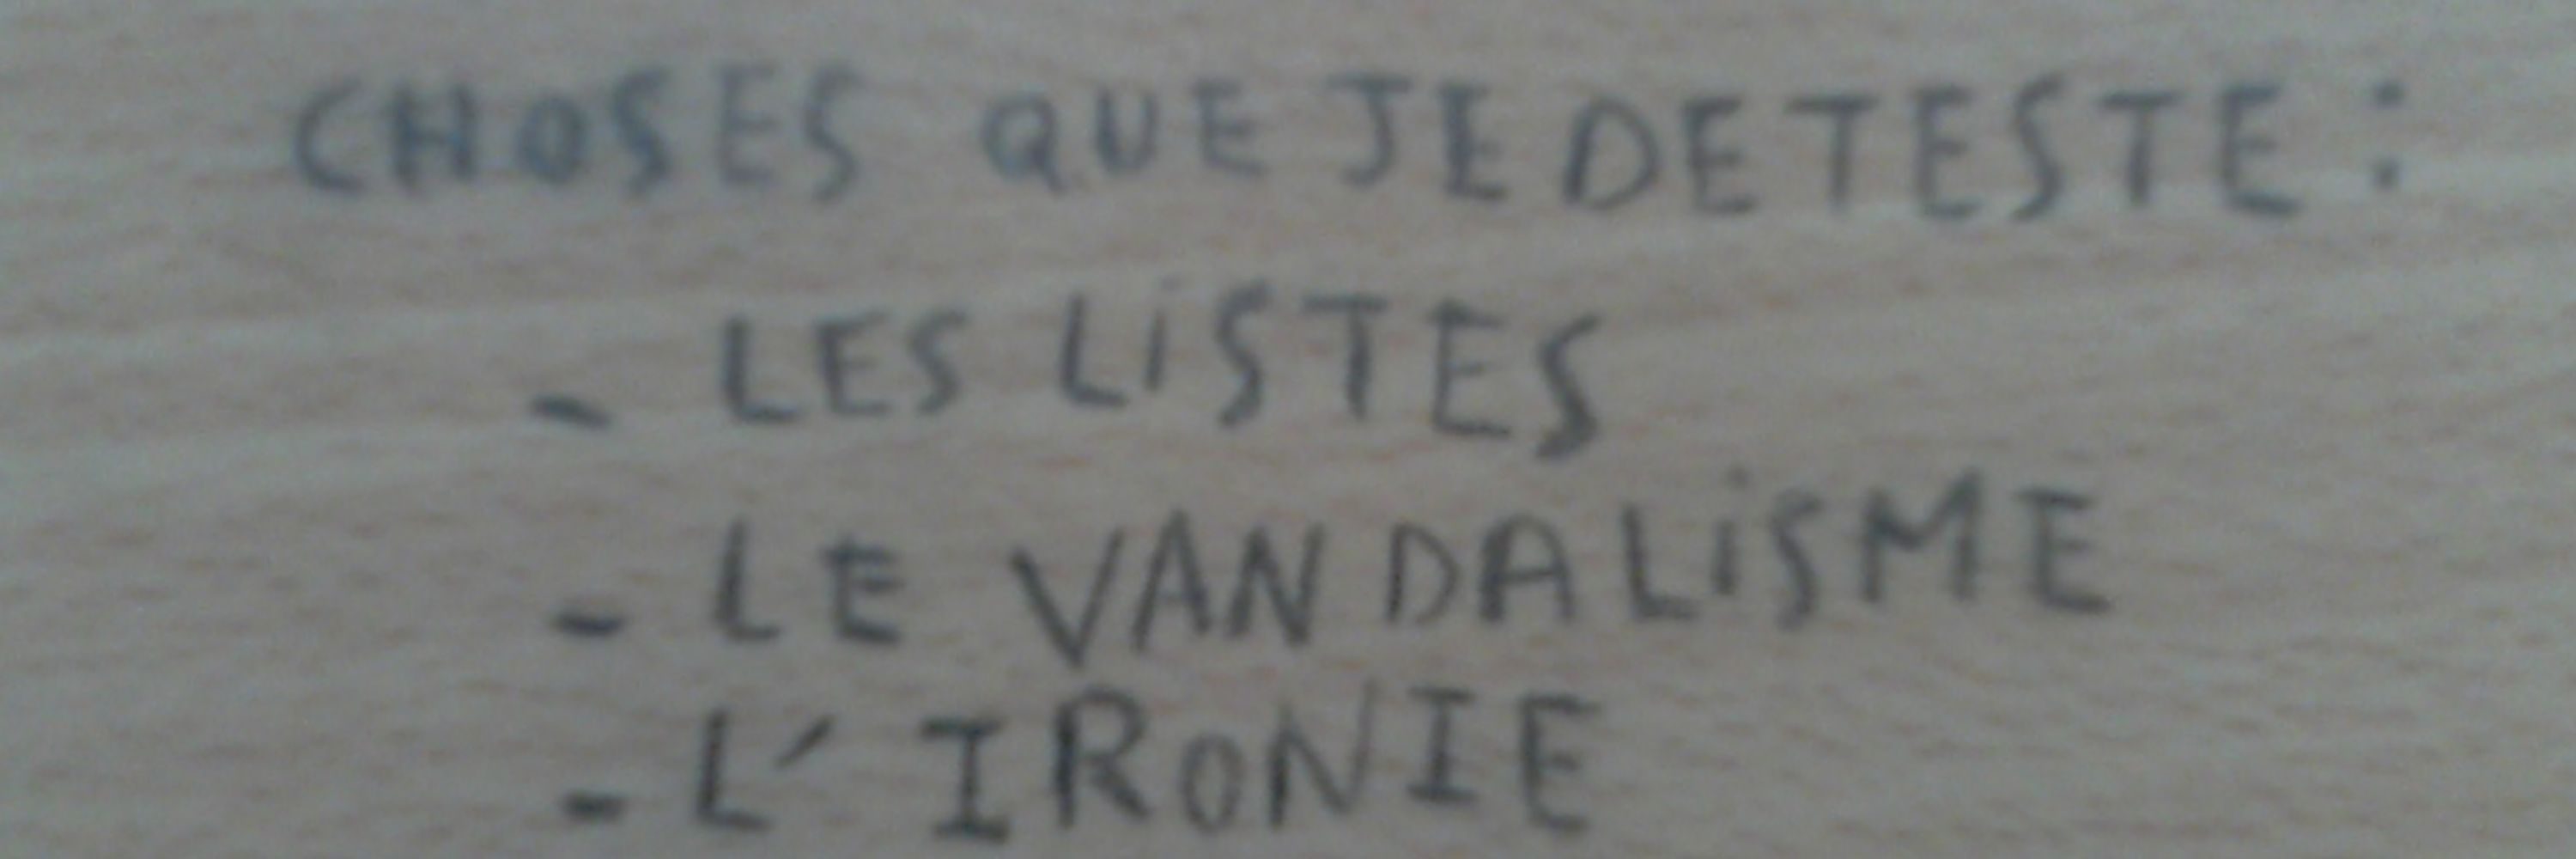 CHOSES QUE JE DETESTE :
- LES LiSTES
- LE VANDALiSME
- L'IRONIE